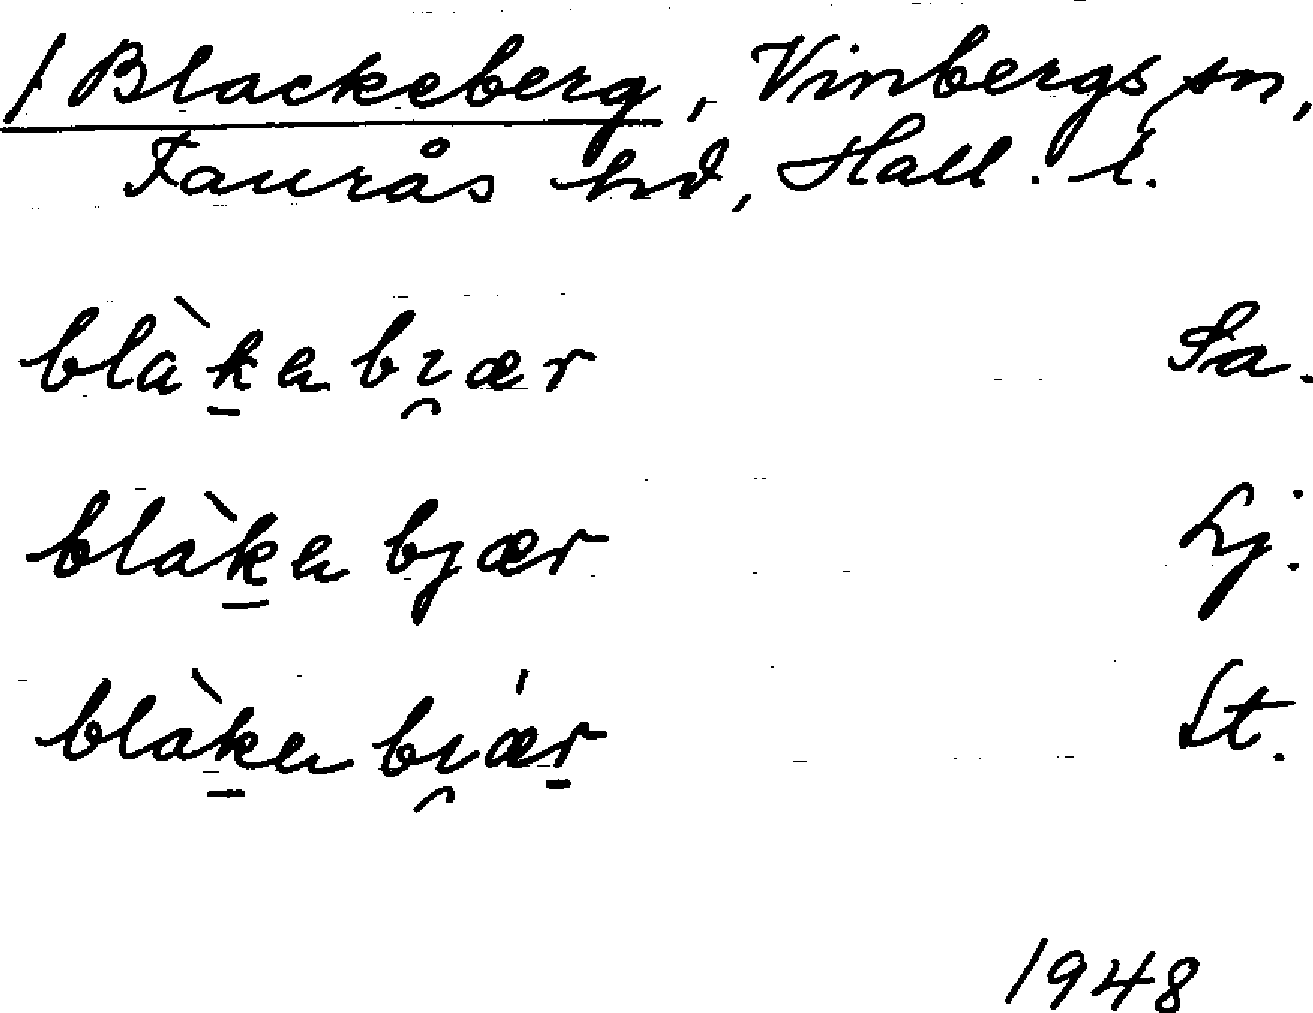 / Blackeberg, Vinbergs sn,
Faurås hd, Hall. l.
blàk̠abɪ̯ær Sa.
blàk̠abjær Lj.
blàk̠abɪ̯ǽr̠ St.
1948